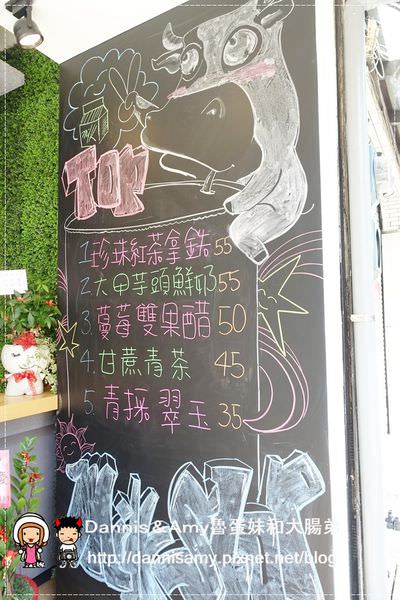 TOP
1.珍珠紅茶拿鉄 55
2.大甲芋頭鮮奶 55
3.蔓莓雙果醋 50
4.甘蔗青茶 45
5.青採翠玉 35
Dannis&Amy魯蛋妹和大腸弟
http://dannisamy.pixnet.net/blog